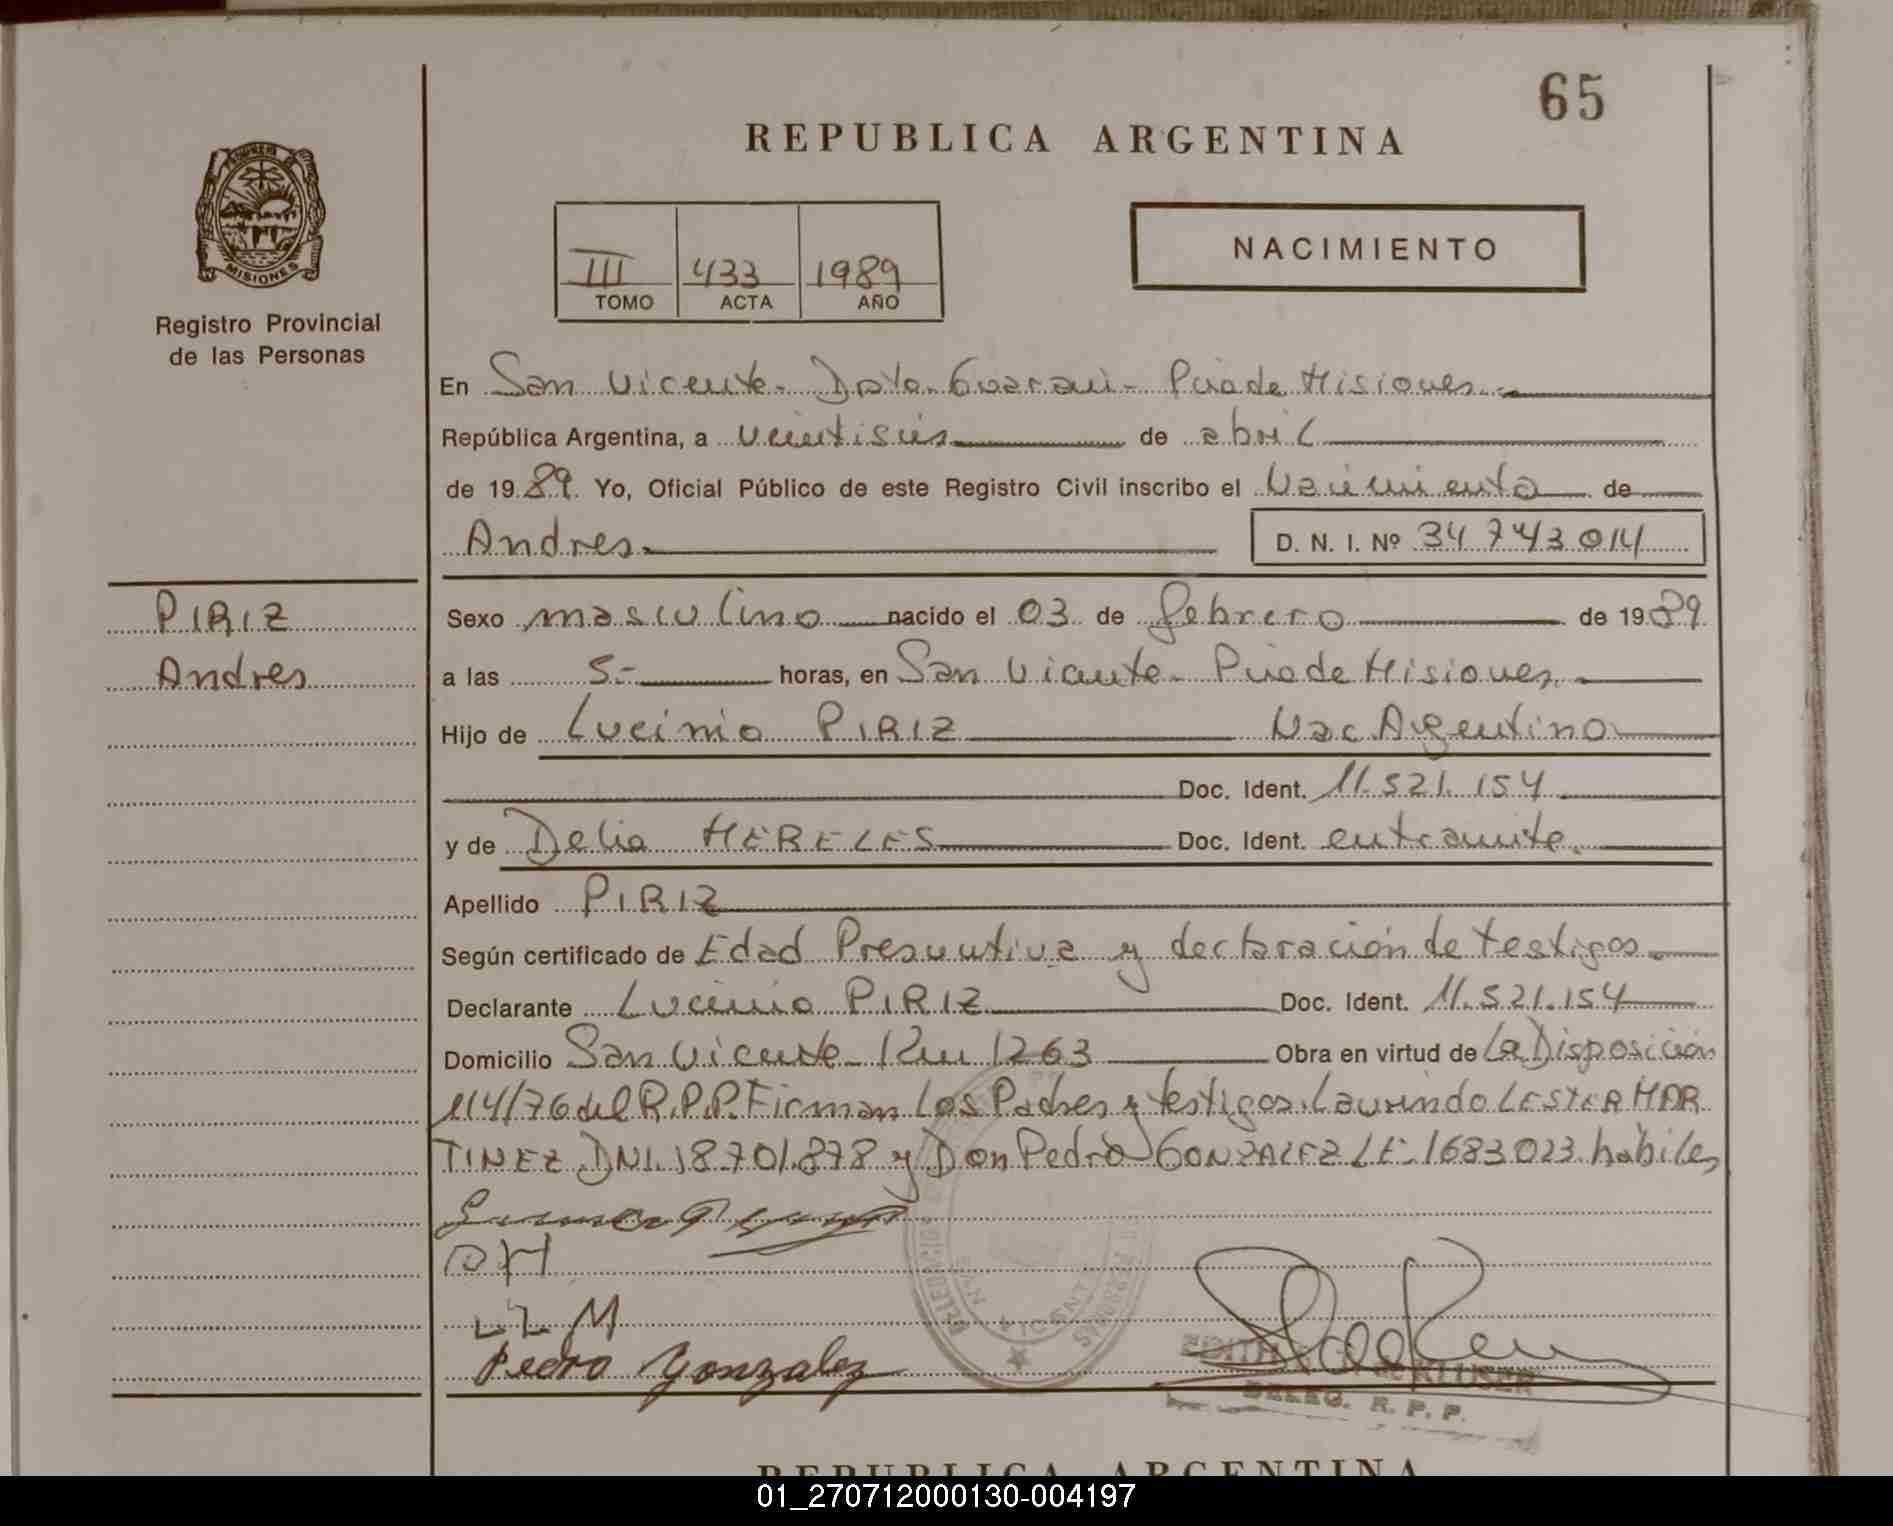 65
REPUBLICA ARGENTINA
PROVINCIA DE
MISIONES
Registro Provincial
de las Personas
III 433 1989
TOMO ACTA AÑO
NACIMIENTO
En San Vicente - Dpto. Guarani - Pcia de Misiones.
República Argentina, a veintiseis de abril
de 1989. Yo, Oficial Público de este Registro Civil inscribo el Nacimiento de
Andres. D. N. I. Nº 34 743 014
PIRIZ
Andres
Sexo masculino nacido el 03 de febrero de 1989.
a las 5.- horas, en San Vicente - Pcia de Misiones.
Hijo de Lucinio PIRIZ Nac Argentino
Doc. Ident. 11.521.154
y de Delia MERELES Doc. Ident. en tramite.
Apellido PIRIZ
Según certificado de Edad Presuntiva y declaración de testigos.
Declarante Lucinio PIRIZ Doc. Ident. 11.521.154
Domicilio San Vicente - Km 1263 Obra en virtud de La Disposición
114/76 del R.P.P. Firman Los Padres y testigos. Laurindo LESTER MAR
TINEZ DNI. 18.701.878 y Don Pedro GONZALEZ LE. 1683023 habiles
DM
LLM
Pedro Gonzalez
SAN VICENTE
EDITH KLUSER
DELEG. R. P. P.
REPUBLICA ARGENTINA
01_270712000130-004197